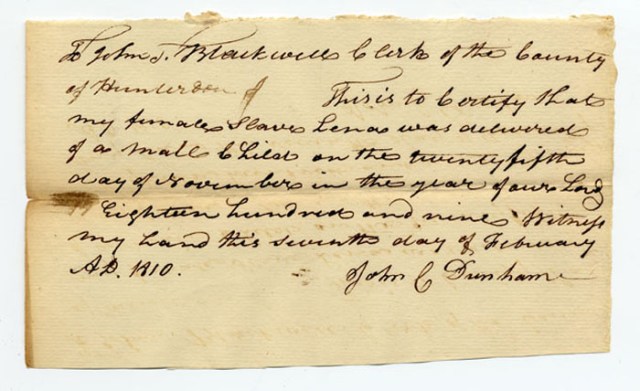 To John T. Blackwell Clerk of the County
of Hunterdon This is to Certify that
my female Slave Lena was delivered
of a Mall Child on the twenty fifth
day of November in the year of our Lord
Eighteen hundred and nine Witness
my hand this seventh day of February
AD. 1810. John C Dunham